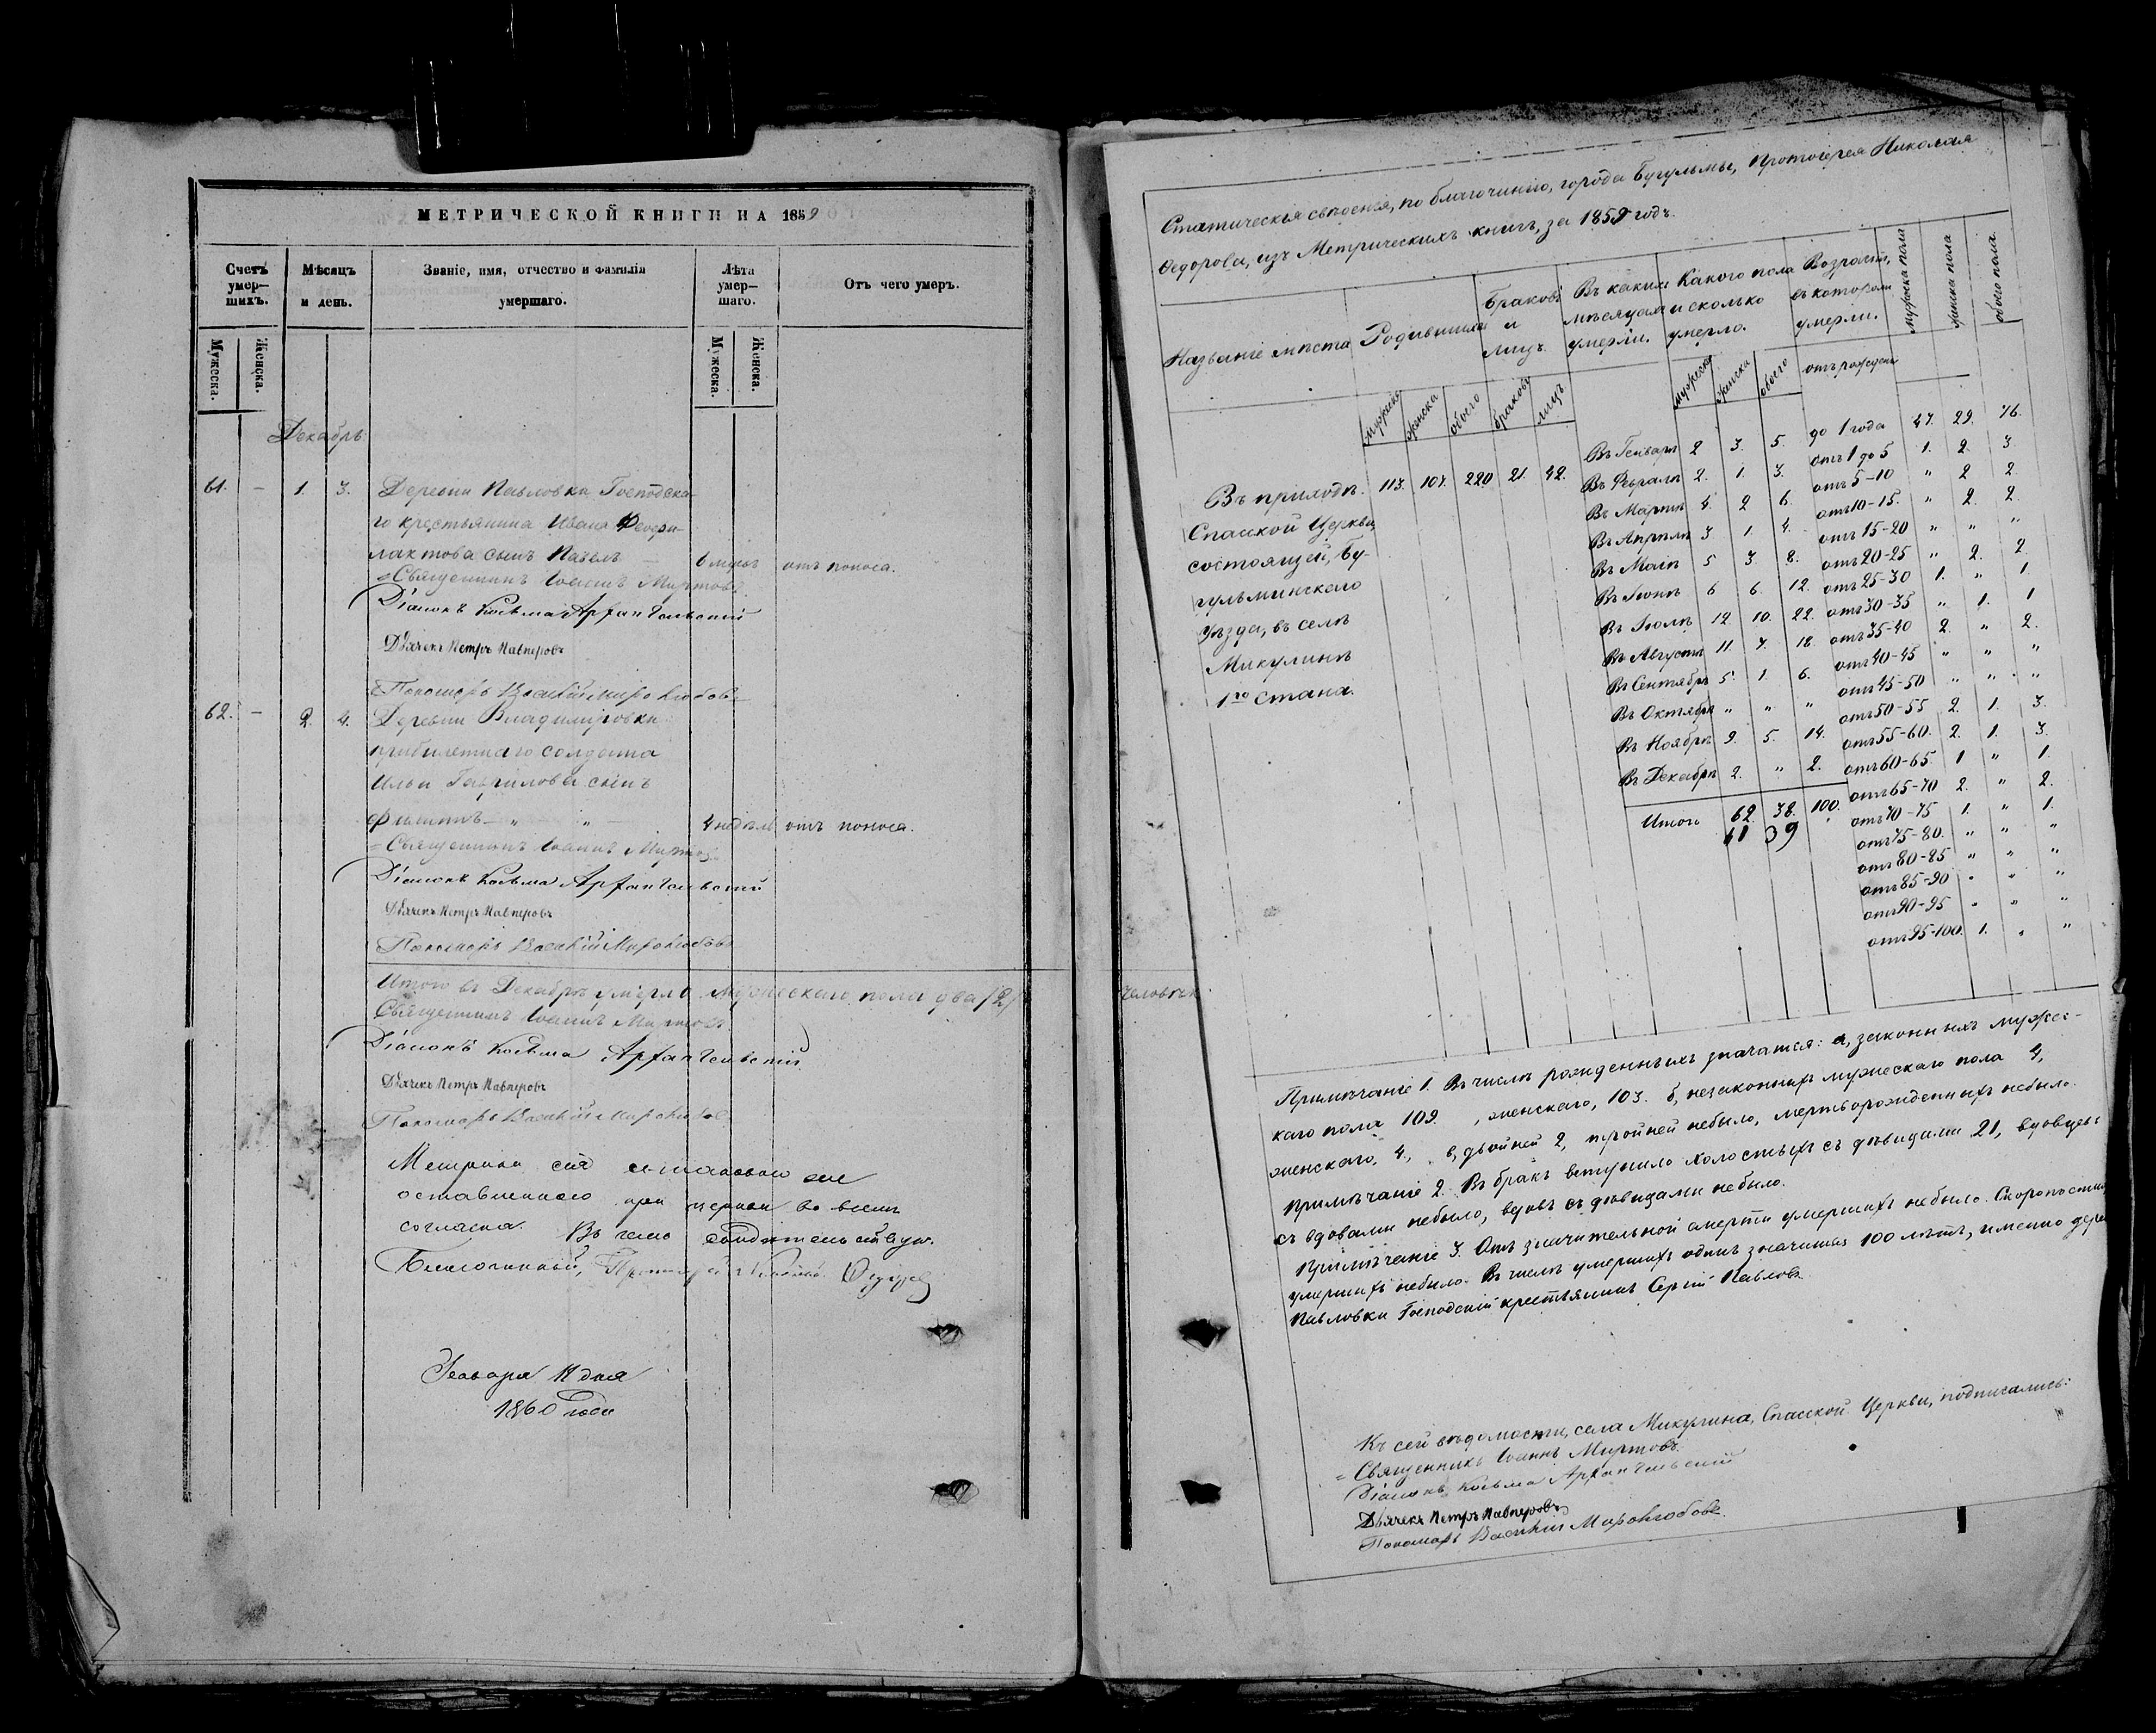 МЕТРИЧЕСКОЙ КНИГИ НА 1859
Счетъ умер–шихъ.
Мѣсяцъ и день.
Званіе, имя, отчество и фамилія умершаго.
Лѣта умер–шаго.
Отъ чего умеръ.
Мужеска.
Женска.
Мужеска.
Женска.
Декабрь
61. – 1. 3. Деревни Павловки Господска-
го крестьянина Ивана Феофи-
лактова сынъ Павелъ – 6 мцовъ отъ поноса.
Священникъ Іоаннъ Миртовъ
Діаконъ Косьма Архангельскій
Дьячекъ Петръ Павперовъ
Пономарь Василій Миролюбовъ
62. – 2. 4. Деревни Владимировки
солдата
Ильи Гаврилова сынъ
Филиппъ – „ „ – 4 недѣль отъ поноса.
Священникъ Іоаннъ Миртовъ
Діаконъ Косьма Архангельскій
Дьячекъ Петръ Павперовъ
Пономарь Василій Миролюбовъ
Итого въ Декабрѣ умерло мужескаго пола два /2/ человѣка
Священникъ Іоаннъ Миртовъ
Діаконъ Косьма Архангельскій
Дьячекъ Петръ Павперовъ
Пономарь Василій Миролюбовъ
Метрика сія
оставленною при церкви во всемъ
согласна. Въ чемъ свидѣтельствую.
Благочинный, Протоіерей Николай Ѳедоровъ
Генваря 11 дня
1860 года
Статическія свѣденія, по благочинію, города Бугульмы, Протоіерея Николая
Ѳедорова, изъ Метрическихъ книгъ, за 1859 годъ.
Названіе мѣста
Родившихся
Браковъ и лицъ.
Въ какихъ мѣсяцахъ умерли.
Какого пола и сколько умерло.
Возрастъ, въ которомъ умерли.
мужеска пола
женска пола
обоего пола
мужеска
женска
обоего
браковъ
лицъ
мужеска
женска
обоего
отъ рожденія
Въ приходѣ 113. 107. 220 21. 42.
Спасской Церкви
состоящей, Бу-
гульминскаго
уѣзда, въ селѣ
Микулинѣ
1го Стана.
Въ Генварѣ 2 3. 5.
Въ Февралѣ 2. 1. 3.
Въ Мартѣ 4. 2 6.
Въ Апрѣлѣ 3 1. 4.
Въ Маіѣ 5 3. 8.
Въ Іюнѣ 6 6. 12.
Въ Іюлѣ 12 10. 22.
Въ Августѣ 11. 7. 18.
Въ Сентябрѣ 5. 1. 6.
Въ Октябрѣ „ „ „
Въ Ноябрѣ 9. 5. 14.
Въ Декабрѣ 2. „ 2.
Итого 62. 38. 100.
61 39
до 1 года 47. 29. 76.
отъ 1 до 5 1. 2. 3.
отъ 5–10 „ 2 2.
отъ 10–15. „ 2. 2.
отъ 15–20 „ „ „
отъ 20–25 „ 2. 2
отъ 25–30 1. „ 1.
отъ 30–35 „ 1. 1
отъ 35–40 2. „ 2.
отъ 40–45 „ „ „
отъ 45–50 „ „ „
отъ 50–55 2. 1. 3.
отъ 55–60. 2. 1. 3.
отъ 60–65. 1 „ 1.
отъ 65–70 2. „ 2.
отъ 70–75 1. „ 1.
отъ 75–80. „ „ „
отъ 80–85 „ „ „
отъ 85–90 „ „ „
отъ 90–95 „ „ „
отъ 95–100. 1. „ „
Примѣчаніе 1. Въ числѣ рожденныхъ значатся: а, законныхъ мужес-
каго пола 109. , женскаго, 103. б, незаконныхъ мужескаго пола 4,
женскаго, 4., в, двойней 2, тройней небыло, мертворожденныхъ небыло.
Примѣчаніе 2. Въ бракъ вступило холостыхъ съ дѣвицами 21, вдовцевъ
съ вдовами небыло, вдовъ съ дѣвицами небыло.
Примѣчаніе 3. Отъ значительной смерти умершихъ небыло. Скоропостиж
умершихъ небыло. Въ числѣ умершихъ одинъ значится 100 лѣтъ, именно дерев
Павловки Господскій крестьянинъ Сергій Павловъ.
Къ сей вѣдомости, села Микулина, Спасской Церкви, подписались:
Священникъ Іоаннъ Миртовъ.
Діаконъ Косьма Архангельскій
Дьячекъ Петръ Павперовъ
Пономарь Василій Миролюбовъ